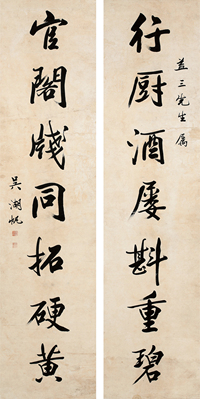 行厨酒屡斟重碧
益三先生属
官阁牋同拓硬黄
吴湖帆